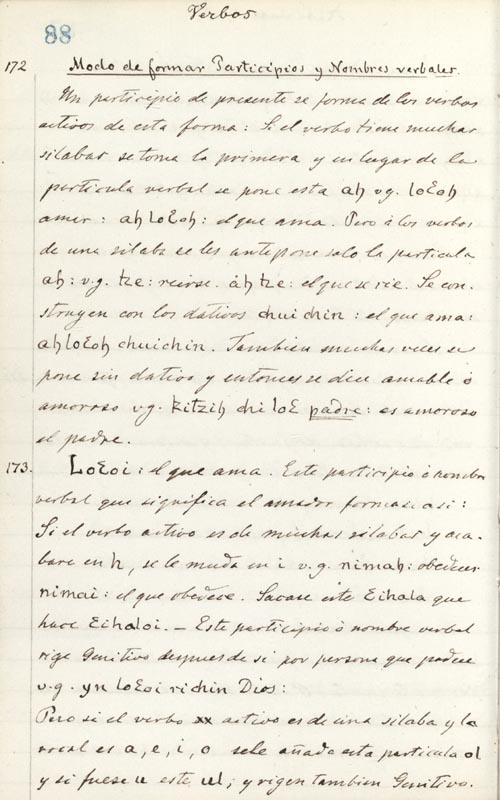 Verbos
88
172 Modo de formar Participios y Nombres verbales.
Un participio de presente se forma de los verbos
activos de esta forma: Si el verbo tiene muchas
silabas se toma la primera y en lugar de la
particula verbal se pone esta ah vg. loƐoh
amer: ah loƐoh: el que ama. Pero á los verbos
de una silaba se les antepone solo la particula
ah: v.g. tze: reirse. áh tze: el que se rie. Se con-
struyen con los dativos chuichin: el que ama:
ahloƐoh chuichin. Tambien muchas veces se
pone sin dativo y entonces se dice amable ó
amoroso v g. kitzih chi loƐ padre: es amoroso
el padre.
173. LoƐoi: el que ama. Este participio ó nombre
verbal que significa el amador formase asi:
Si el verbo activo es de muchas silabas y aca-
bare en h, se le muda en i v.g. nimah: obedecer
nimai: el que obedece. Sacase este Ɛihala que
hace Ɛihaloi. — Este participio ó nombre verbal
rige Genitivo despues de si por persona que padece
v.g. yn loƐoi richin Dios:
Pero si el verbo xx activo es de una silaba y la
vocal es a, e, i, o sele añada esta particula ol
y si fuese u este ul; y rigen tambien Genitivo.